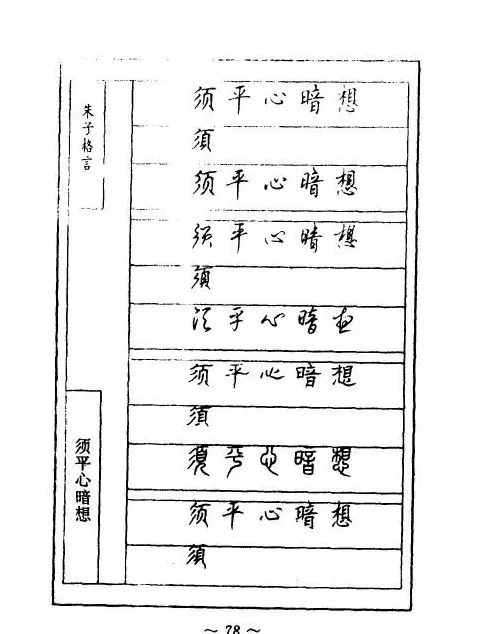 朱子格言
须平心暗想
须平心暗想
須
须平心暗想
须平心暗想
須
须平心暗想
须平心暗想
須
須平心暗想
须平心暗想
須
～ 78 ～